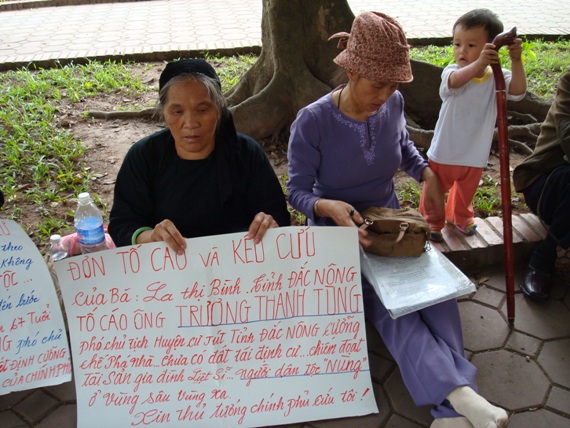 ĐƠN TỐ CÁO VÀ KÊU CỨU
của Bà: La thị Bình. tỉnh ĐẮC NÔNG
TỐ CÁO ÔNG TRƯƠNG THANH TÙNG
phó chủ tịch Huyện cư Jút Tỉnh ĐẮC NÔNG cưỡng
chế Phá nhà... chưa có đất tái định cư... chiếm đoạt
tài sản gia đình Liệt Sĩ... người dân tộc "Nùng"
ở vùng sâu vùng xa.
Xin thủ tướng chính phủ Cứu tôi!
không
TỘC ..."
67 TUỔI
phó chủ
ĐỊNH CƯỠNG
CỦA CHÍNH P